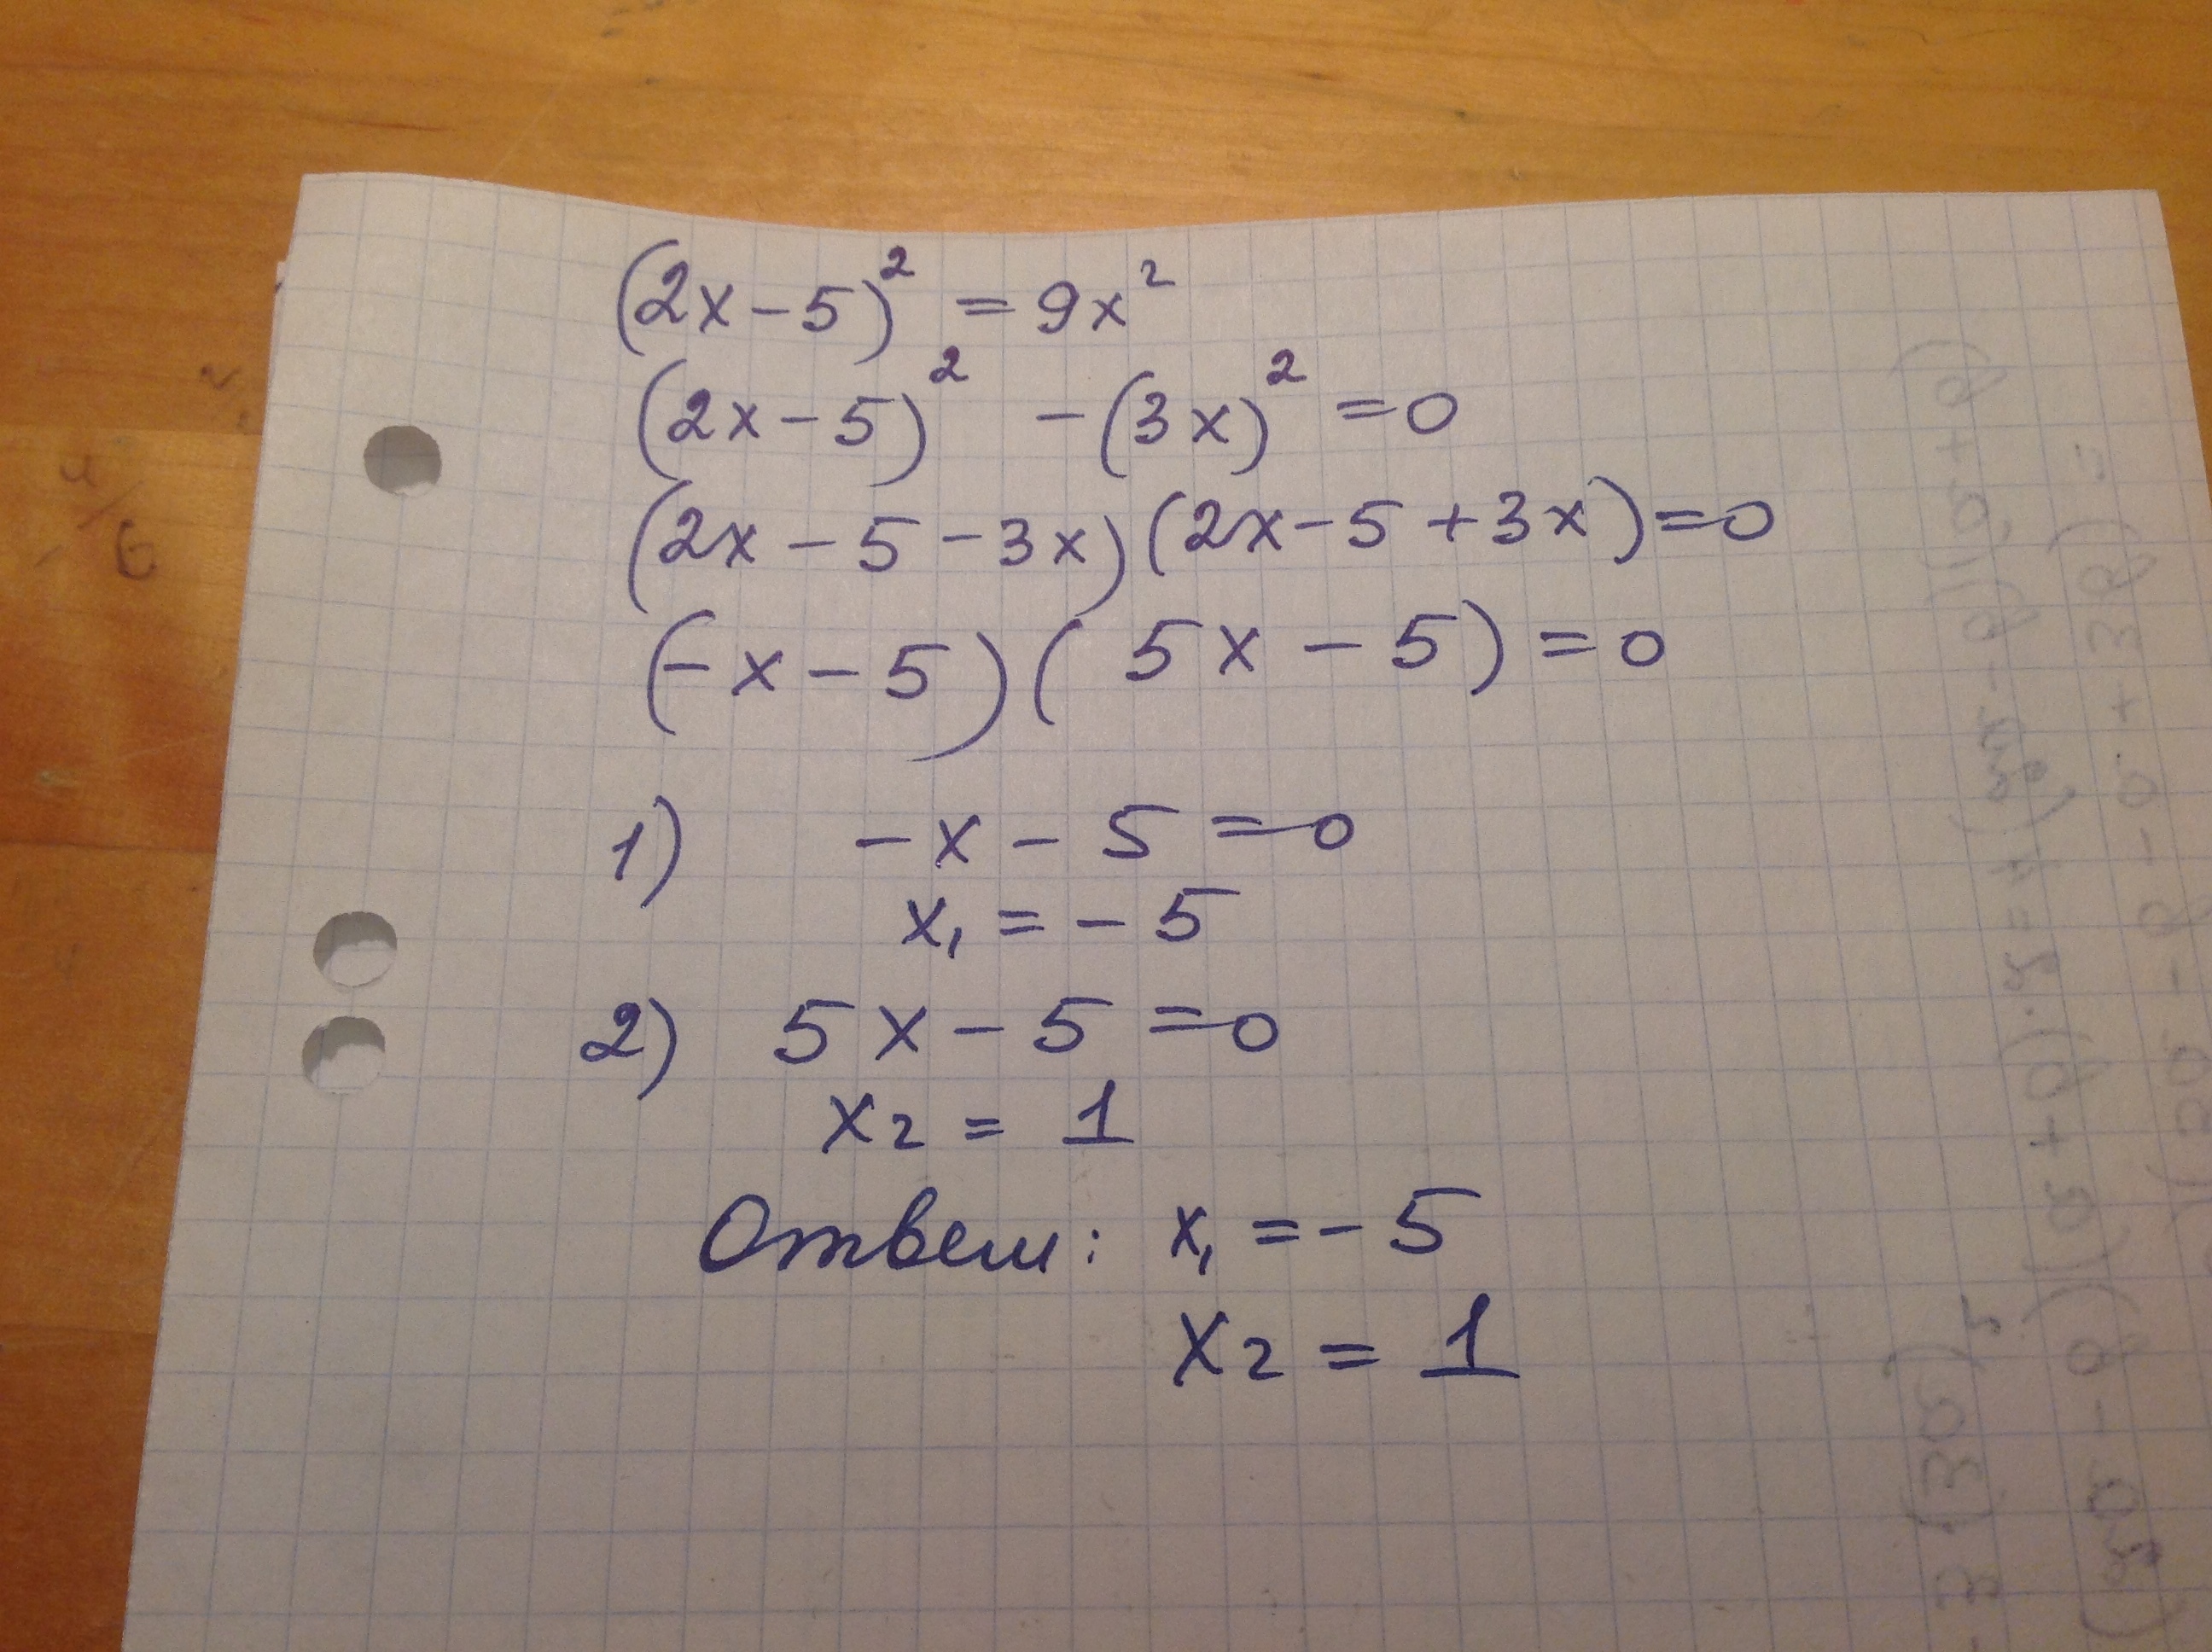 (2x-5)² = 9x²
(2x-5)² - (3x)² = 0
(2x - 5 - 3x)(2x - 5 + 3x) = 0
(-x - 5)(5x - 5) = 0
1) -x - 5 = 0
x₁ = -5
2) 5x - 5 = 0
x₂ = 1
Ответ: x₁ = -5
x₂ = 1